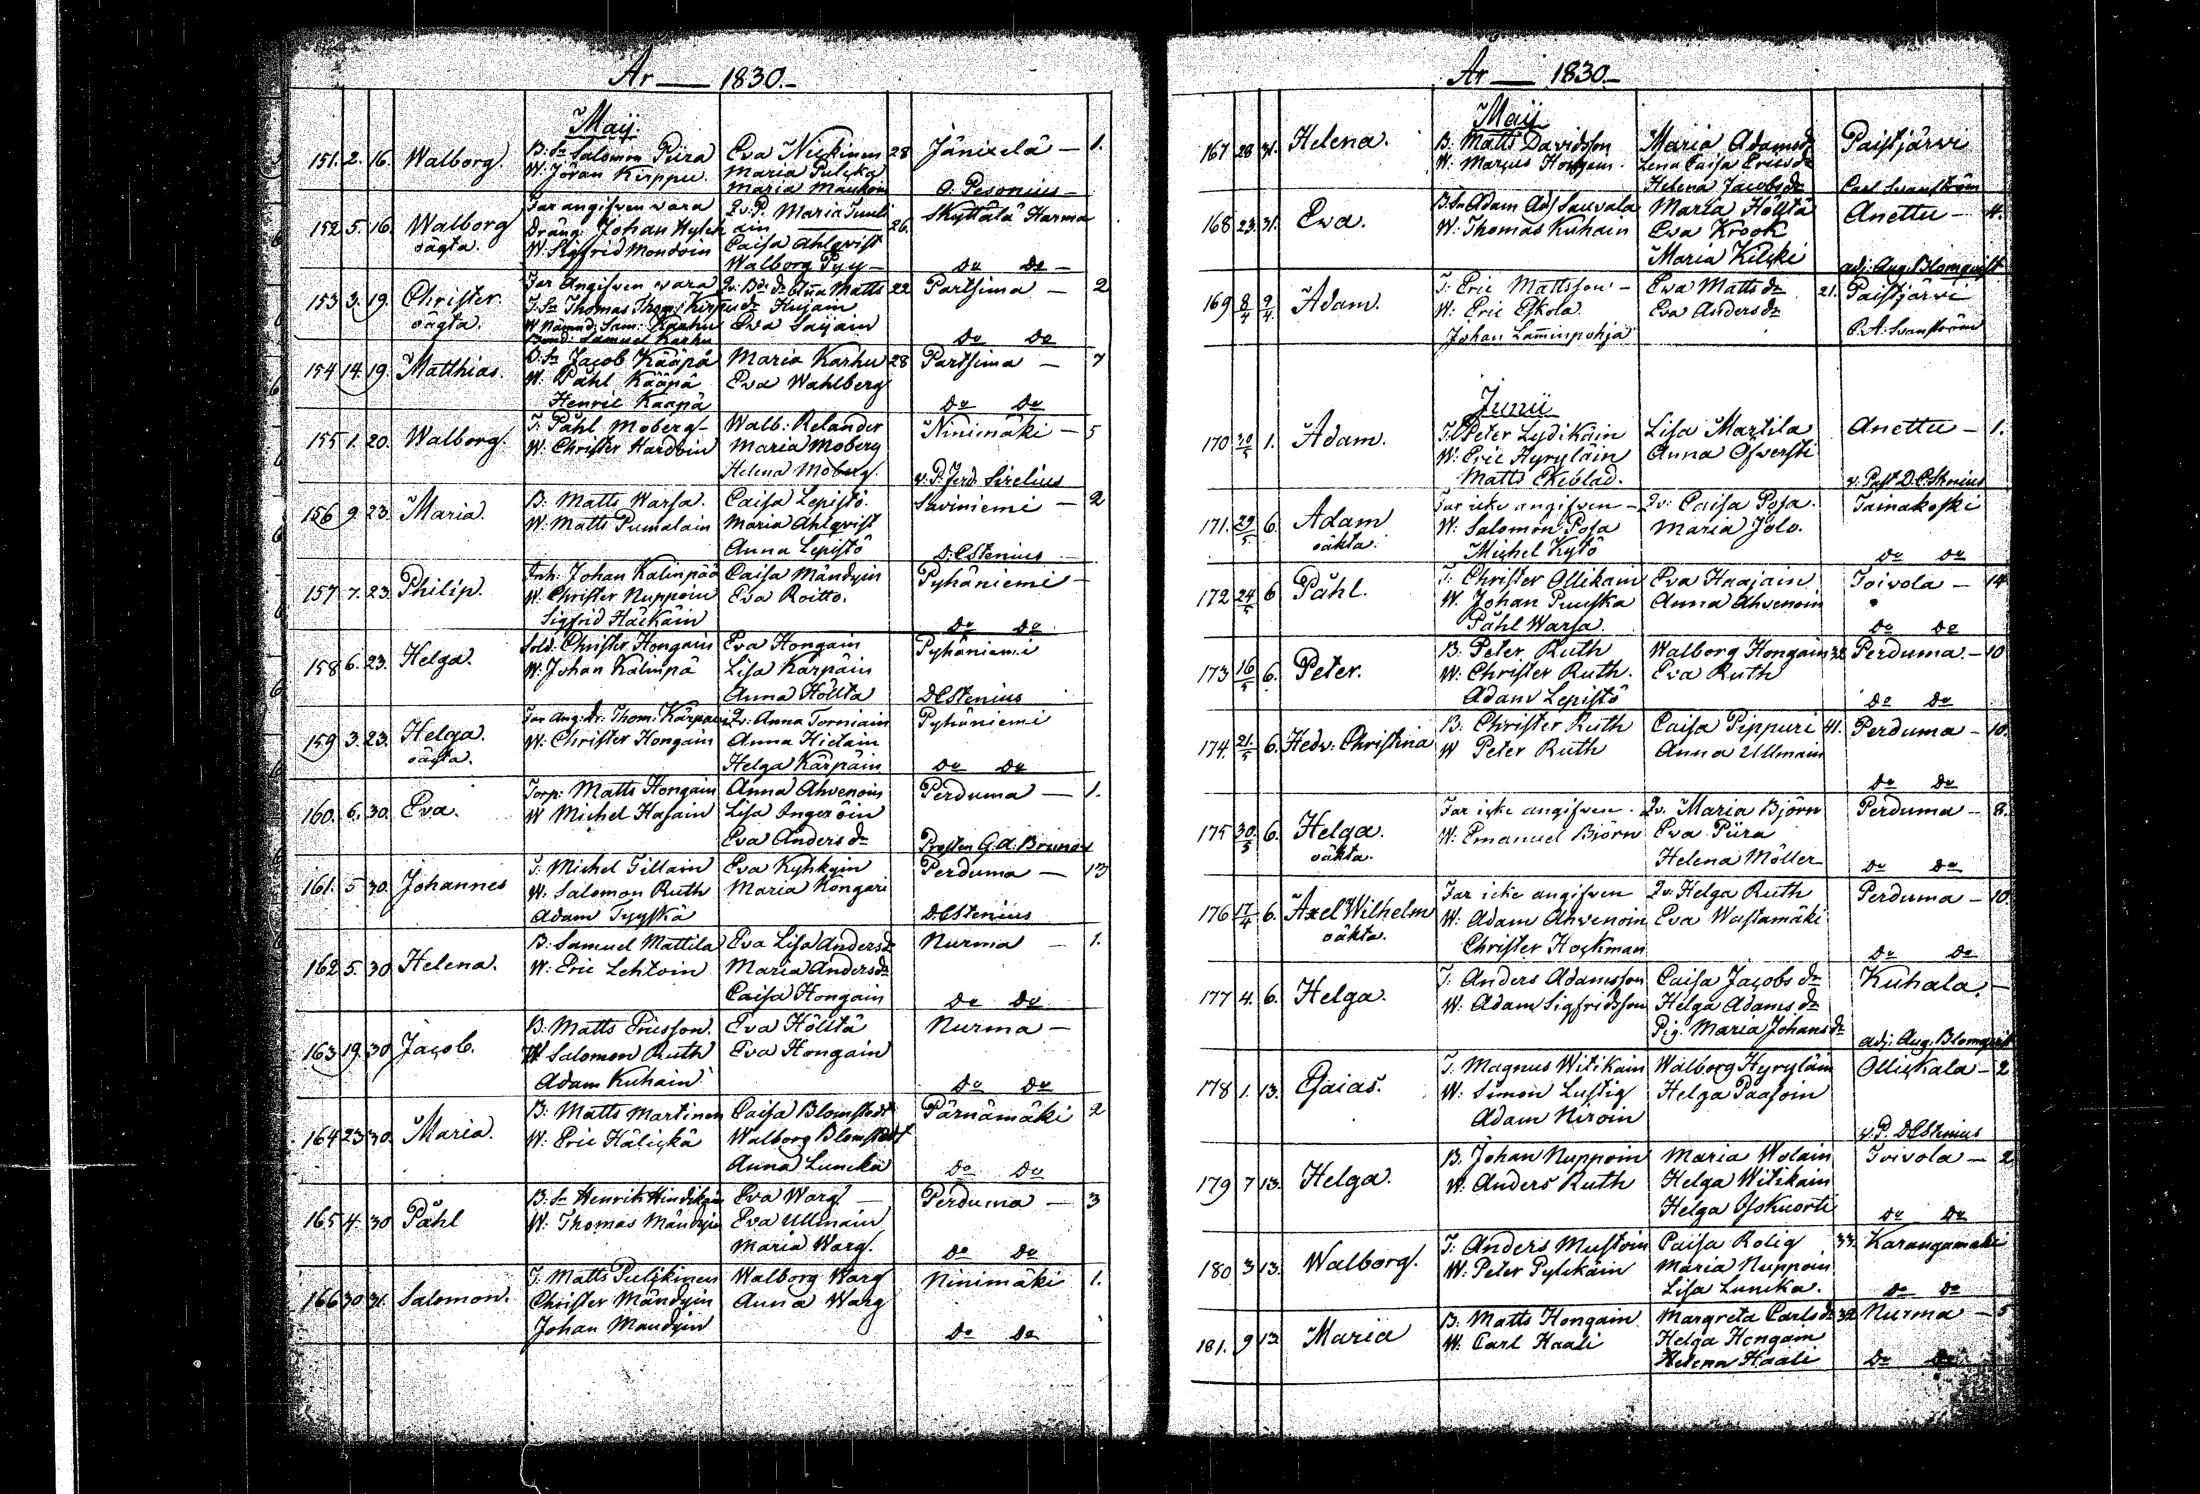 År — 1830.
Maij.
151. 2. 16. Walborg. B. Sn Salomon Piira Eva Neukinen 28 Jänixelä — 1.
W. Jöran Kirppu. Maria Pulcka
Maria Maukoin O. Pesonius
152 5. 16. Walborg Far angifven vara Qv. P. Maria Junti 26. Skyttälä Harma
oägta. dräng: Johan Hylck ain
W. Sigfrid Mondoin Caisa Ahlqvist
Walborg Pyy — do do —
153 3. 19. Christer. Far Angifven vara Qv. Bd: dr Anna Matts 22 Partsima — 2
oägta. T. Sn Thomas Thom: Kirppu dr Kujain
W Nämnd: Sam: Karhu Eva Saijain
Bond: Samuel Karhu do do
154 14. 19. Matthias. B. Sn Jacob Kääpä Maria Karhu 28 Partsima — 7
W. Påhl Kääpä Eva Wahlberg
Henric Kääpä do do
155 1. 20. Walborg. T. Påhl Moberg Walb: Relander Ninimäki — 5
W. Christer Hardoin Maria Moberg
Helena Moberg. v. P. Ferd: Sirelius
156 9. 23. Maria. B. Matts Warsa. Caisa Lepistö Saviniemi — 2
W. Matts Pumalain Maria Ahlqvist
Anna Lepistö D. Estenius
157 7. 23. Philip. Inh: Johan Kalinpää Caisa Mändyin Pyhäniemi —
W. Christer Nuppoin Eva Roitto.
Sigfrid Häckäin do do
158 6. 23. Helga. Sold. Christer Hongain Eva Hongain Pyhäniemi
W. Johan Kalinpä Lisa Karpäin
Anna Höltta D Estenius
159 3. 23. Helga. Far ang: dr: Thom: Kärpäin Qv: Anna Torniain Pyhäniemi
oägta. W. Christer Hongain Anna Hietain
Helga Kärpäin do do
160. 6. 30. Eva. Torp: Matts Hongain Anna Ahvenoin Perduma — 1.
W Michel Hasain Lisa Ingeröin
Eva Anders dr Prosten G. A. Brunou
161. 5 30. Johannes T. Michel Tillain Eva Kyhkyin Perduma — 13
W. Salomon Ruth Maria Kongari
Adam Tyyskä D Estenius
162 5. 30 Helena. B. Samuel Mattila Eva Lisa Anders dr Nurma — 1.
W: Eric Lehtoin Maria Anders dr
Caisa Hongain do do
163 19. 30 Jacob. B. Matts Ericsson. Eva Höltta Nurma —
W Salomon Ruth Eva Hongain
Adam Kuhain do do
164 23 30. Maria. B. Matts Martinen Caisa Blomstedt Pärnämäki 2
W. Eric Hälickä Walborg Blomstedt
Anna Luncka do do
165 4. 30 Påhl B: Sn Henrik Hindikain Eva Warg — Perduma — 3
W. Thomas Mändyin Eva Ullmain
Maria Warg. do do
166 30 31. Salomon. T. Matts Pulckinen Walborg Warg Ninimäki 1.
Christer Mändyin Anna Warg
Johan Mandyin do do
År — 1830.
Maij
167 28 31. Helena. B. Matts Davidsson Maria Adams dr Paistjärvi
W. Marcus Hongain. Lena Caisa Erics dr
Helena Jacobs dr Carl Svanström
168 23. 31. Eva. B. Sn Adam Adj Sauvala Maria Höltta Anettu — 4.
W. Thomas Kuhain Eva Krook
Maria Kilcki adj. Aug. Blomqvist
169 8/4 9/4. Adam. T. Eric Mattsson — Eva Matts dr 21. Paistjärvi
W: Eric Eskola. Eva Anders dr
Johan Lamminpohja C. A. Svanström
Junii
170 30/5 1. Adam. Peter Lydikäin Lisa Martila Anettu — 1.
W. Eric Hyryläin Anna Ofwersti
Matts Ekeblad. v. Past D. Estenius
171. 29/5 6. Adam Far icke angifven — Qv: Caisa Posa. Tainakoski
oäkta. W. Salomon Posa Maria Jolo.
Michel Kytö do do
172 24/5 6 Påhl. T: Christer Ollikain Eva Haajain Toivola — 14
W. Johan Puuska Anna Ahvenoin
Påhl Warsa. do do
173 16/5 6. Peter. B. Peter Ruth Walborg Hongain 38 Perduma. — 10
W: Christer Ruth. Eva Ruth
Adam Lepistö do do
174. 21/5 6. Hedv: Christina B. Christer Ruth Caisa Pippuri 41. Perduma — 10.
W Peter Ruth Anna Ullmain
do do
175 30/5 6. Helga. Far icke angifven. Qv. Maria Björn Perduma — 8.
oäkta. W: Emanuel Björn Eva Piira
Helena Möller do do
176 17/4 6. Axel Wilhelm Far icke angifven Qv. Helga Ruth Perduma — 10
oäkta. W: Adam Ahvenoin Eva Wastamäki
Christer Hackman do do
177 4. 6. Helga. T. Anders Adamsson Caisa Jacobs dr Kuhala. —
W. Adam Sigfridsson Helga Adams dr
Pig. Maria Johans dr adj: Aug. Blomqvist
178 1. 13. Esaias. T. Magnus Witikain Walborg Hyryläin Ollickala — 2
W: Simon Lustig Helga Paasoin
Adam Niroin v. P. D Estenius
179 7 13. Helga. B. Johan Nuppoin Maria Wolain Toivola — 2
W: Anders Ruth Helga Witikain
Helga Isokuorti do do
180 3 13. Walborg. T: Anders Mustoin Caisa Rolig 33. Karangamäki
W: Peter Pylckäin Maria Nuppoin
Lisa Luncka. do do
181. 9 13. Maria B: Matts Hongain Margreta Carls dr 32 Nurma — 5
W: Carl Haali Helga Hongain
Helena Haali do do